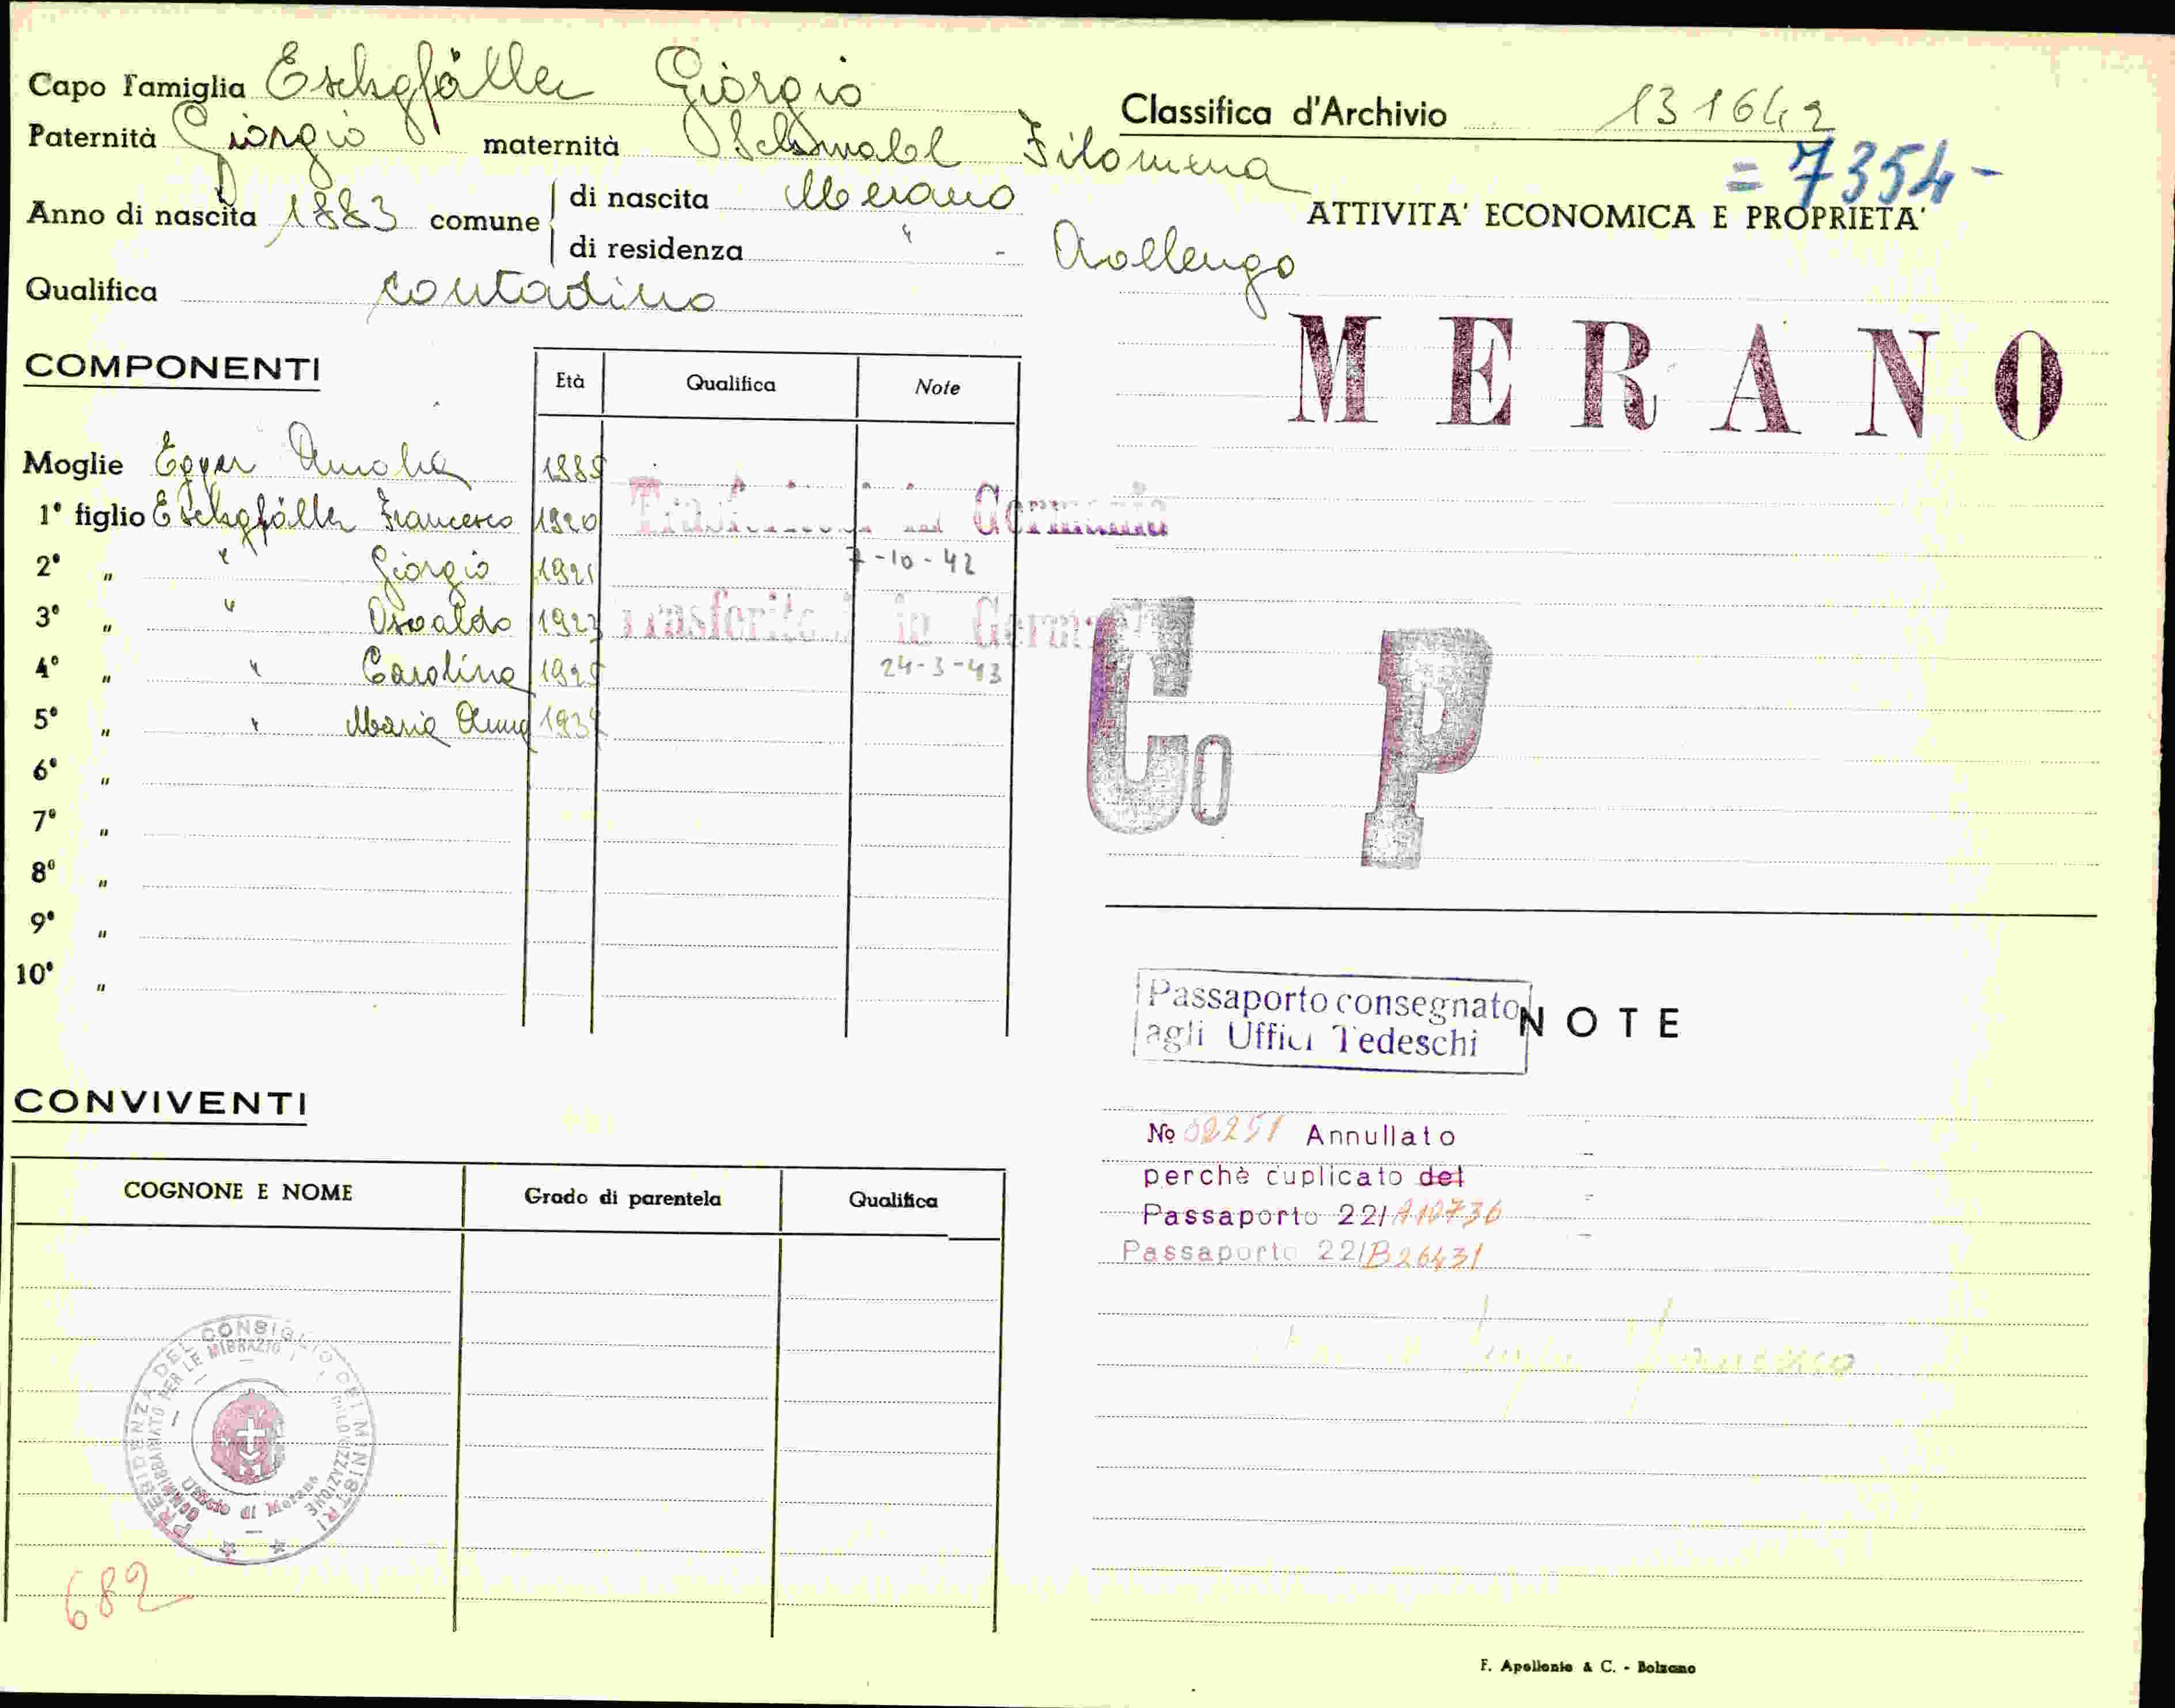 Capo Famiglia Eschgfäller Giorgio
Paternità Giorgio maternità Schwabl Filomena
Anno di nascita 1883 comune di nascita Merano
di residenza " - Avelengo
Qualifica contadino
COMPONENTI
Età Qualifica Note
Moglie Egger Amalia 1885
1° figlio Eschgfäller Francesco 1920 in Germania
2° " " Giorgio 1921 7-10-42
3° " " Osvaldo 1923 Trasferito in
4° " " Carolina 1925 24-3-43
5° " " Maria Anna
6° "
7° "
8° "
9° "
10° "
CONVIVENTI
COGNONE E NOME Grado di parentela Qualifica
PRESIDENZA DEL CONSIGLIO DEI MINISTRI
Ufficio di Merano
682
Classifica d'Archivio 131642
= 7354 -
ATTIVITA' ECONOMICA E PROPRIETA'
MERANO
Co P
Passaporto consegnato
agli Uffici Tedeschi
NOTE
No 02251 Annullato
perchè cuplicato del
Passaporto 22/
Passaporto 22/B26431
Francesco
F. Apollonio & C. - Bolzano